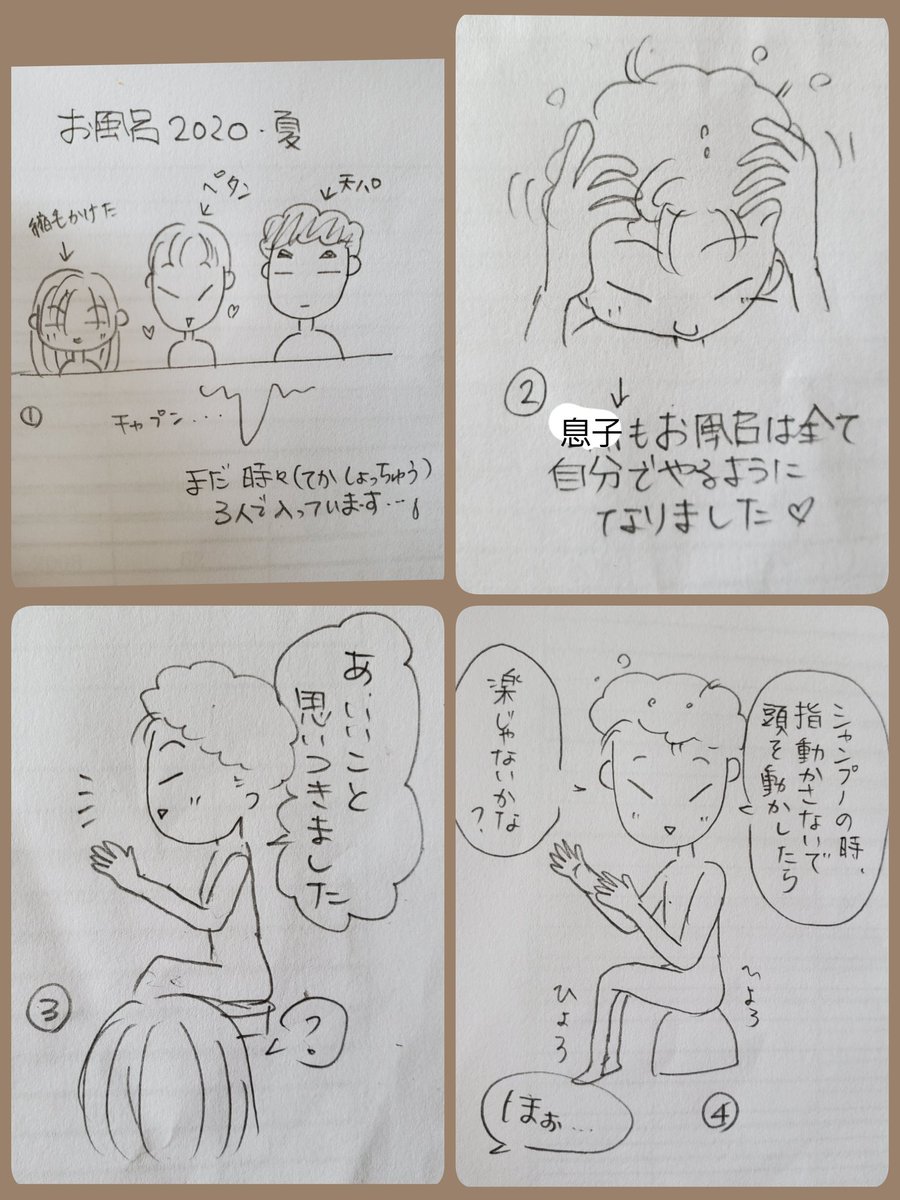 お風呂2020・夏
縮毛かけた
ペタン
天パ
①
チャプン...
まだ時々(てかしょっちゅう)
3人で入っています…
②
息子もお風呂は全て
自分でやるように
なりました♡
あ、いいこと
思いつきました
③
?
シャンプーの時、
指動かさないで
頭を動かしたら
楽じゃないかな
?
ひょろ
ひょろ
ほぉ…
④